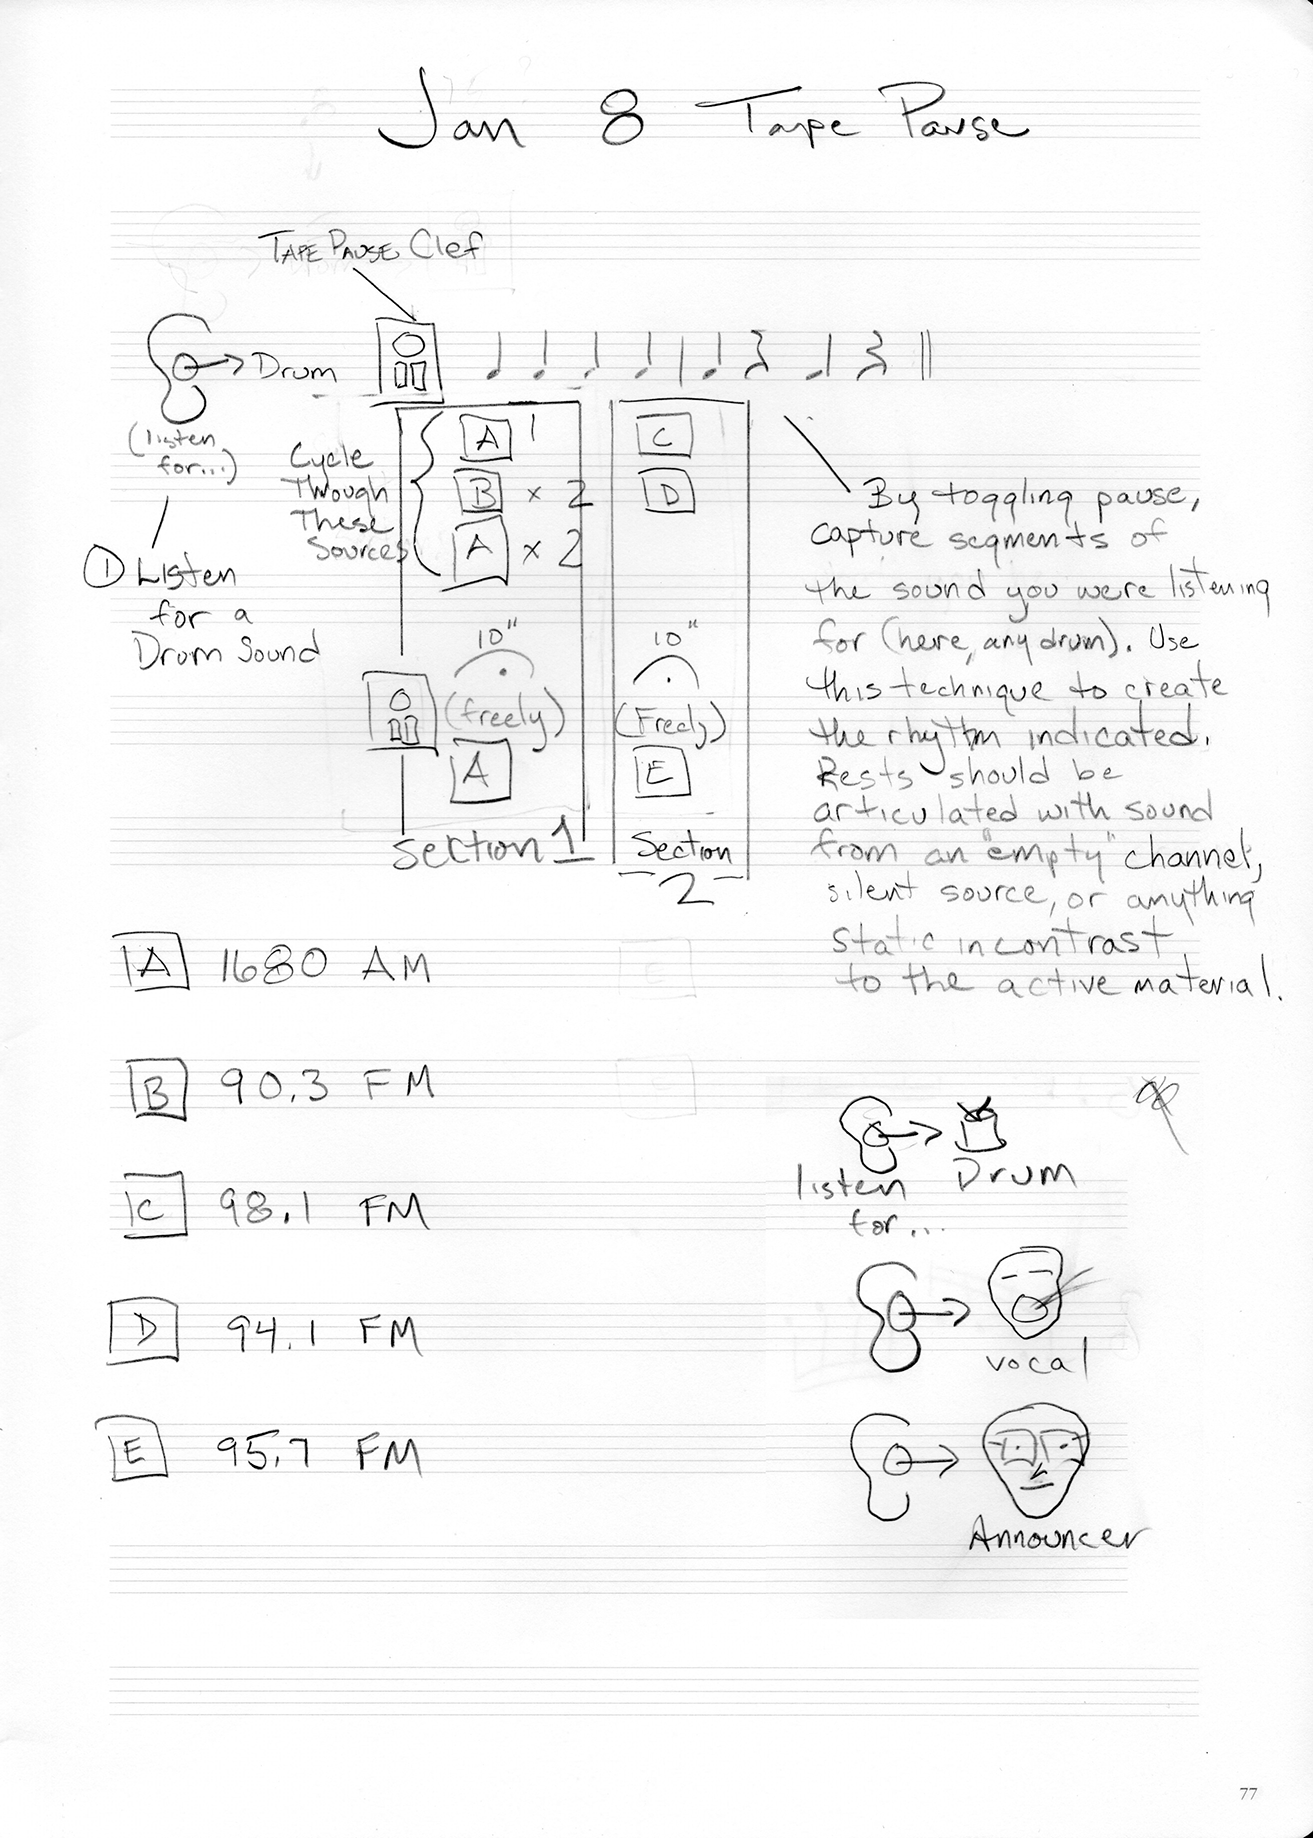 Jan 8 Tape Pause
TAPE PAUSE Clef
Drum
(listen
for...)
① Listen
for a
Drum Sound
Cycle
Through
These
Sources
A 1
B × 2
A × 2
10"
(freely)
A
Section 1
C
D
10"
(Freely)
E
Section
2
By toggling pause,
capture segments of
the sound you were listening
for (here, any drum). Use
this technique to create
the rhythm indicated.
Rests should be
articulated with sound
from an "empty" channel,
silent source, or anything
static in contrast
to the active material.
A 1680 AM
B 90.3 FM
C 98.1 FM
D 94.1 FM
E 95.7 FM
listen
for...
Drum
vocal
Announcer
77